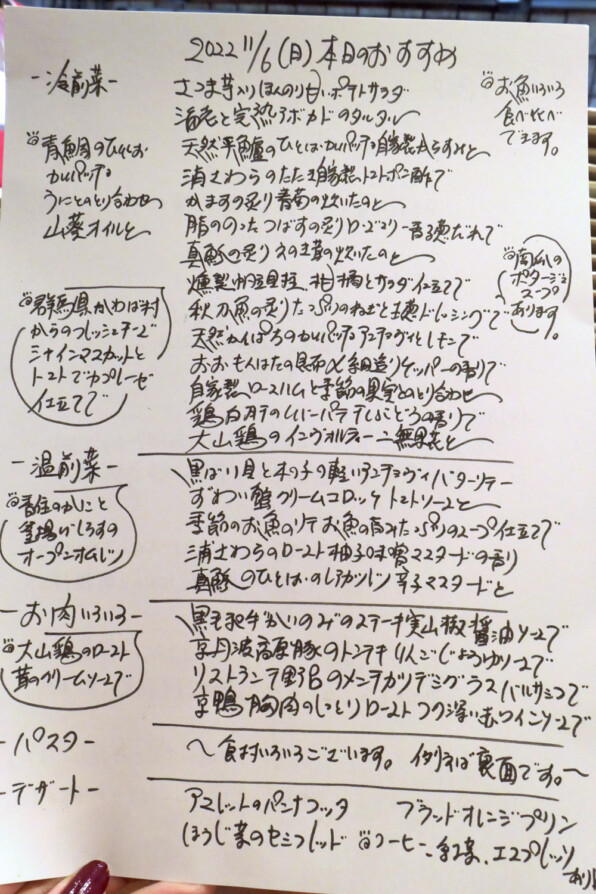 2022 11/6 (日) 本日のおすすめ
-冷前菜-
さつま芋入りほんのり甘いポテトサラダ
海老と完熟アボカドのタルタル
天然平鱸のひとはカルパッチョ自家製からすみと
浦さわらのたたき自家製トマトポン酢で
かますの炙り春菊の炊いたのと
脂ののったつばすの炙りローズマリー香る煎だれで
真鯵の炙り 茸の炊いたのと
燻製帆立貝柱、柑橘とサラダ仕立てで
秋刀魚の炙りたっぷりのねぎと土穂ドレッシングで
天然かんぱちのカルパッチョアンチョヴィとレモンで
おおもんはたの昆布〆 細造りケッパーの香りで
自家製ロースハムと季節の果実とのとり合わせ
鶏白肝のレバーパテ ぶどうの香りで
大山鶏のインヴォルティーニ無花果と
お魚いろいろ
食べくらべ
できます。
青鯛のひらお
カルパッチョ
うにとのとり合わせ
山葵オイルと
南瓜の
ポタージュ
スープ
あります。
群馬県かわば村
からのフレッシュチーズ
シャインマスカットと
トマトでカプレーゼ
仕立てで
-温前菜-
黒ばい貝と木の子の軽いアンチョヴィバターソテー
ずわい蟹クリームコロッケ トマトソースと
季節のお魚のソテーお魚の旨みたっぷりのスープ仕立てで
浦さわらのロースト柚子味噌マスタードの香り
真鯵のひとはかのレアカツレツ 辛子マスタードと
香住のかにと
釜揚げしらすの
オープンオムレツ
-お肉いろいろ-
黒毛和牛かいのみのステーキ実山椒醤油ソースで
京丹波高原豚のトンテキりんごじょうゆソースで
リストランテ野呂のメンチカツデミグラスバルサミコで
京鴨胸肉のしっとりローストコク深い赤ワインソースで
大山鶏のロースト
茸のクリームソースで
-パスタ-
〜食材いろいろございます。例えば裏面です。〜
-デザート-
アメレットのパンナコッタ ブラッドオレンジプリン
ほうじ茶のセミフレッド コーヒー、紅茶、エスプレッソ
あり